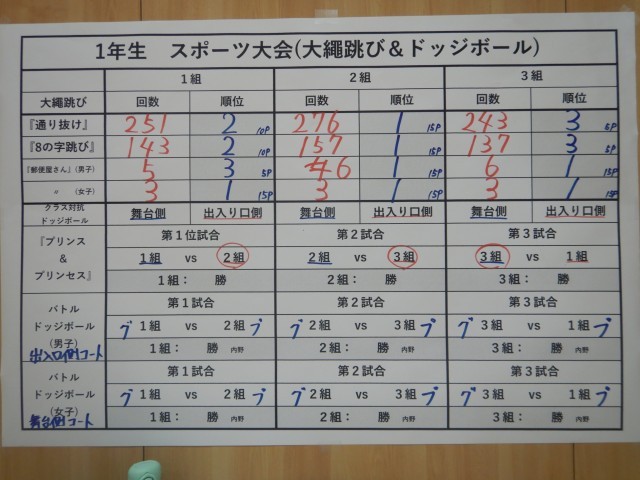 1年生　スポーツ大会(大繩跳び＆ドッジボール)
1組 2組 3組
大繩跳び 回数 順位 回数 順位 回数 順位
『通り抜け』 251 2 10P 276 1 15P 243 3 5P
『8の字跳び』 143 2 10P 157 1 15P 137 3 5P
『郵便屋さん』(男子) 5 3 5P 6 1 15P 6 1 15P
〃 (女子) 3 1 15P 3 1 15P 3 1 15P
クラス対抗
ドッジボール 舞台側 出入り口側 舞台側 出入り口側 舞台側 出入り口側
『プリンス
&
プリンセス』
第1位試合 第2試合 第3試合
1組 vs 2組 2組 vs 3組 3組 vs 1組
1組： 勝 2組： 勝 3組： 勝
バトル
ドッジボール
(男子)
出入口側コート
第1試合 第2試合 第3試合
ブ 1組 vs 2組 ブ ブ 2組 vs 3組 ブ ブ 3組 vs 1組 ブ
1組： 勝 内野 2組： 勝 内野 3組： 勝
バトル
ドッジボール
(女子)
舞台側コート
第1試合 第2試合 第3試合
ブ 1組 vs 2組 ブ ブ 2組 vs 3組 ブ ブ 3組 vs 1組 ブ
1組： 勝 内野 2組： 勝 内野 3組： 勝